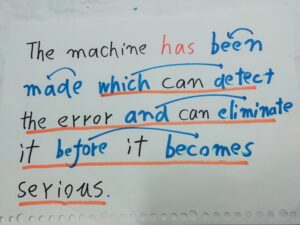 The machine has been
made which can detect
the error and can eliminate
it before it becomes
serious.